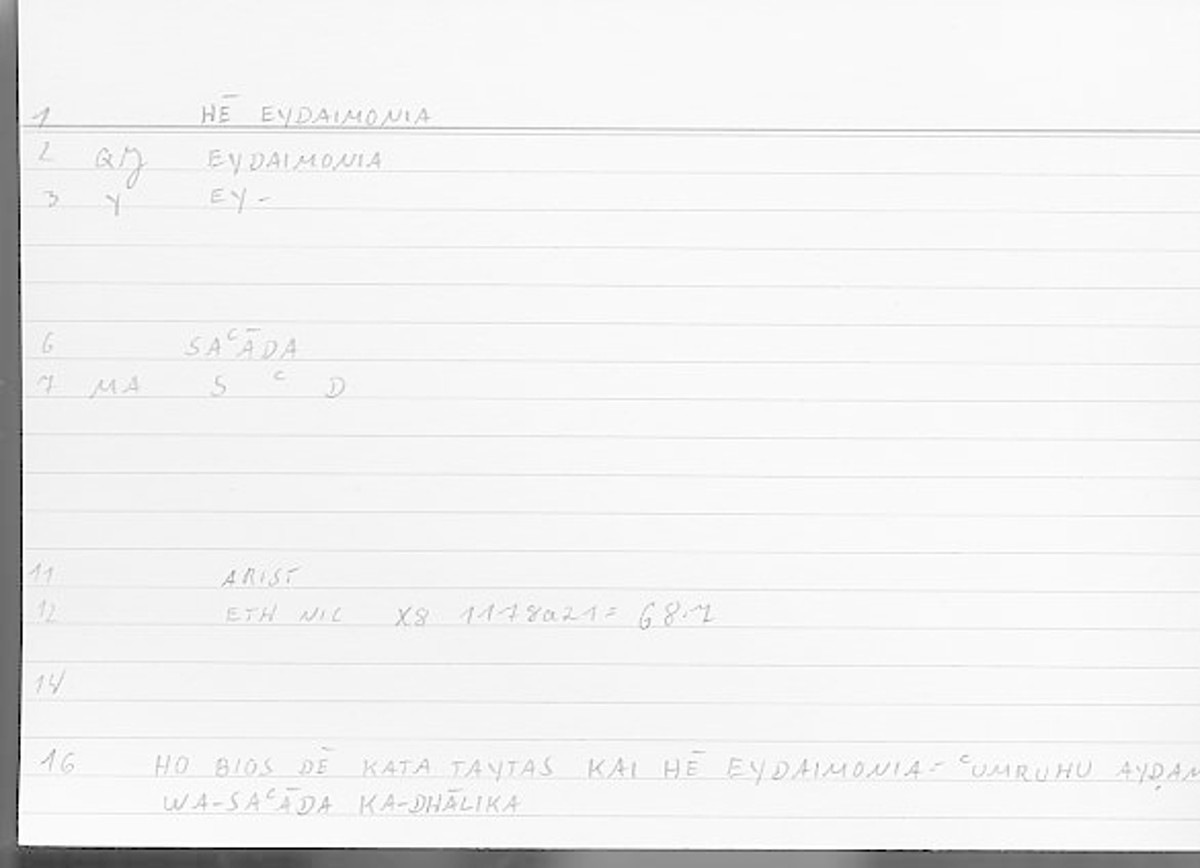 1 HĒ EYDAIMONIA
2 GQ EYDAIMONIA
3 Y EY-
6 SAᶜĀDA
7 MA S ᶜ D
11 ARIST
12 ETH NIC X8 1178a21= 68.7
14
16 HO BIOS DĒ KATA TAYTAS KAI HĒ EYDAIMONIA= ᶜUMRUHU AYḌAN
WA-SAᶜĀDA KA-DHĀLIKA